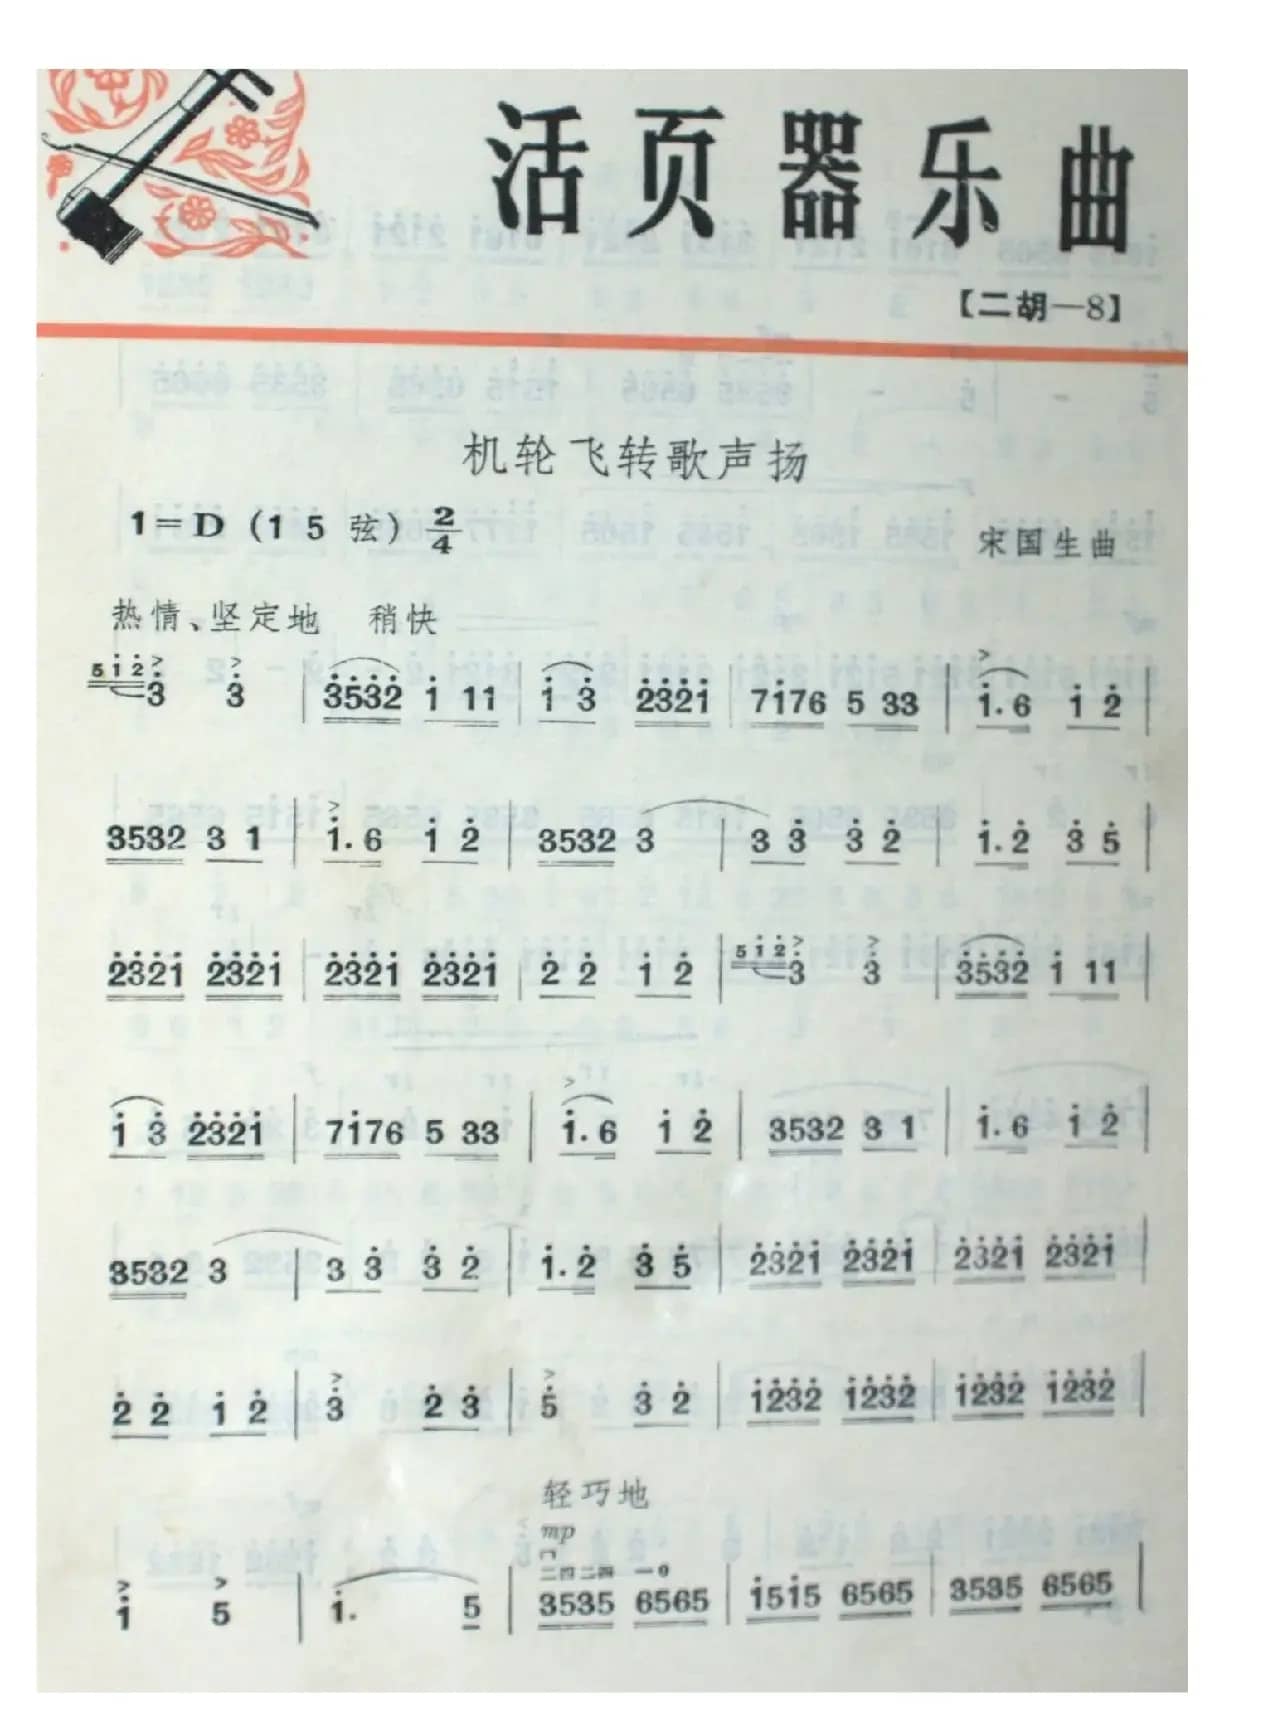 活页器乐曲
【二胡—8】
机轮飞转歌声扬
1=D（1 5 弦）2/4
宋国生曲
热情、坚定地 稍快
5 1̇ 2̇ 3̇ 3̇ | 3̇5̇3̇2̇ 1̇ 11 | 1̇ 3̇ 2̇3̇2̇1̇ | 71̇76 5 33 | 1̇. 6 1̇ 2̇ |
3532 3 1 | 1̇. 6 1̇ 2̇ | 3532 3 | 3 3̇ 3̇ 2̇ | 1̇. 2̇ 3̇ 5̇ |
2̇3̇2̇1̇ 2̇3̇2̇1̇ | 2̇3̇2̇1̇ 2̇3̇2̇1̇ | 2̇ 2̇ 1̇ 2̇ | 5 1̇ 2̇ 3̇ 3̇ | 3̇5̇3̇2̇ 1̇ 11 |
1̇ 3̇ 2̇3̇2̇1̇ | 71̇76 5 33 | 1̇. 6 1̇ 2̇ | 3532 3 1 | 1̇. 6 1̇ 2̇ |
3532 3 | 3 3̇ 3̇ 2̇ | 1̇. 2̇ 3̇ 5̇ | 2̇3̇2̇1̇ 2̇3̇2̇1̇ | 2̇3̇2̇1̇ 2̇3̇2̇1̇ |
2̇ 2̇ 1̇ 2̇ | 3̇ 2̇ 3̇ | 5̇ 3̇ 2̇ | 1̇2̇3̇2̇ 1̇2̇3̇2̇ | 1̇2̇3̇2̇ 1̇2̇3̇2̇ |
轻巧地
mp
二四二四 一0
1̇ 5 | 1̇. 5 | 3535 6565 | 1̇51̇5 6565 | 3535 6565 |